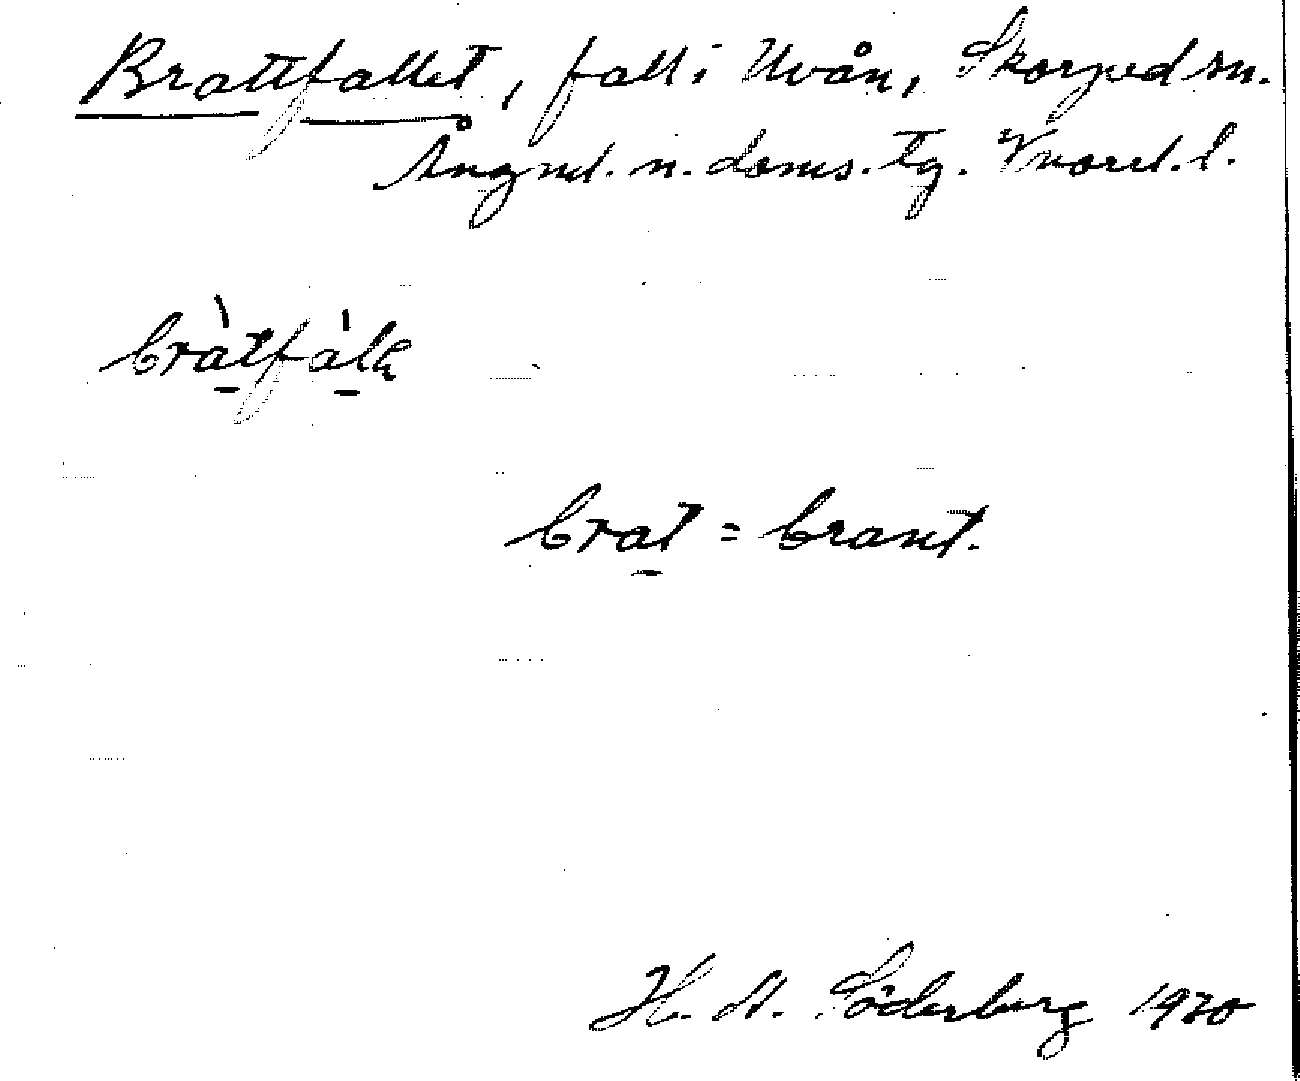 Brattfallet, fall i Uvån, Skorped sn.
Ångml. n. doms. tg. Vnorrl. l.
bràtfálɛ
brat = brant.
H. A. Söderberg 1920